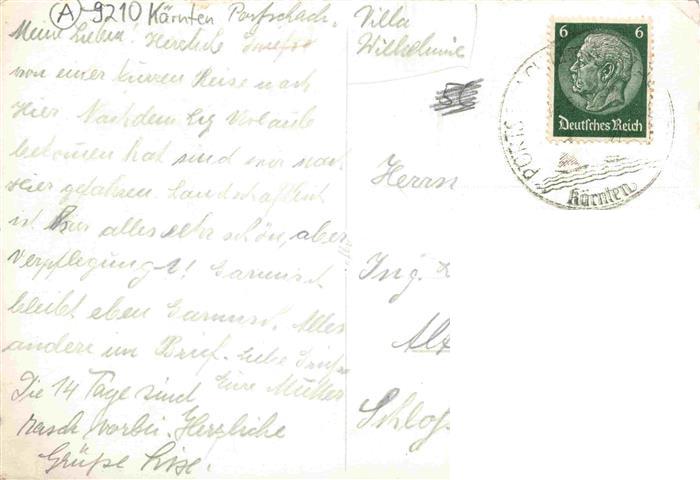 A 9210 Kärnten Portschach, Villa
Wilhelmine
Meine Lieben! Herzliche Grüße
von einer kurzen Reise nach
hier. Nachdem Urlaub
bekommen hat sind wir nach
hier gefahren. Landschaftlich
ist hier alles sehr schön, aber
Verpflegung! Garmisch
bleibt eben Garmisch. Alles
andere im Brief. Liebe Grüße
Eure Mutter
Die 14 Tage sind
rasch vorbei. Herzliche
Grüße Lise.
56
6 6
Deutsches Reich
Kärnten
Herrn
Ing.
Schloß